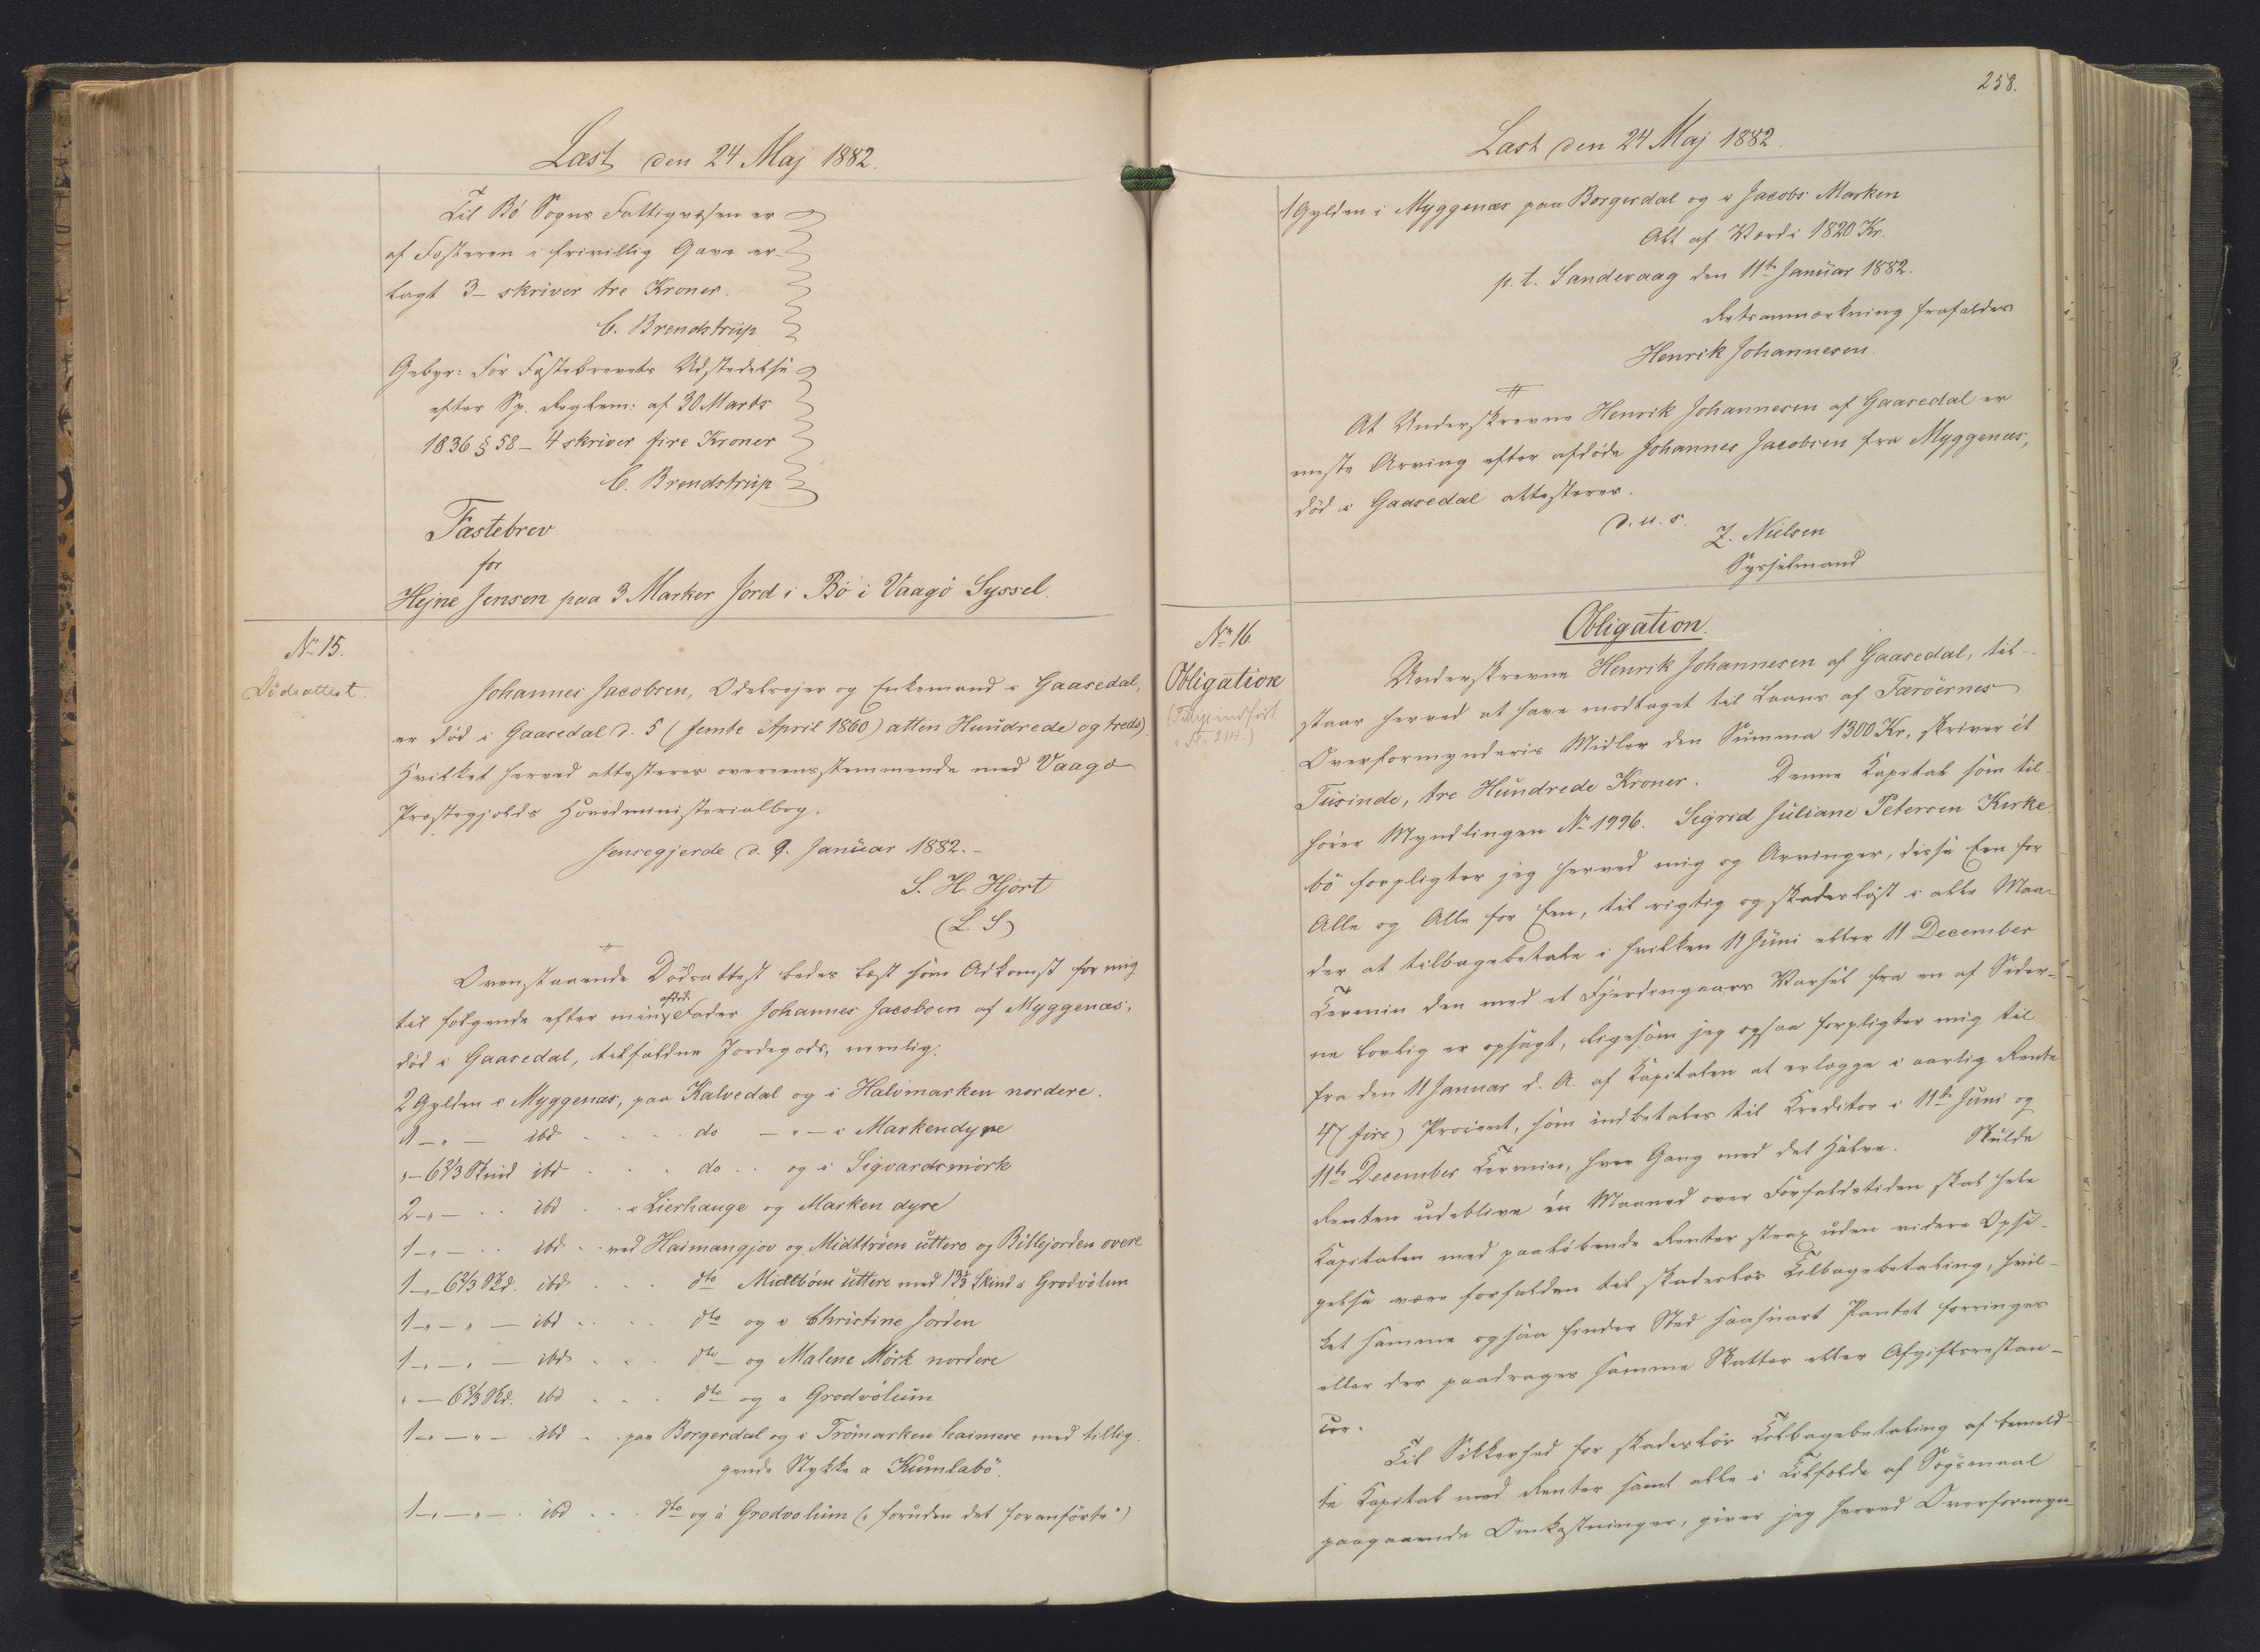 Læst den 24 Maj 1882.
Til Bö Sogns Fattigvæsen er
af Fæsteren i frivillig Gave er-
lagt 3 – skriver tre Kroner.
C. Brendstrup
Gebyr: For Fæstebrevets Udstedelse
efter Sp. Reglem: af 30 Marts
1836 § 58 – 4 skriver fire Kroner
C. Brendstrup
Fæstebrev
for
Hejne Jensen paa 3 Marker Jord i Bö i Vaagö Syssel.
No 15.
Dödsattest.
Johannes Jacobsen, Odelsejer og Enkemand i Gaasedal,
er död i Gaasedal d. 5 (femte April 1860) atten Hundrede og treds).
Hvilket herved attesteres overensstemmende med Vaagö
Præstegjelds Hovedministerialbog.
Jensegjerde d. 9. Januar 1882. –
S. H. Hjort
(L. S)
Ovenstaaende Dödsattest bedes læst som Adkomst for mig
til fölgende efter min afdöde Fader Johannes Jacobsen af Myggenæs,
död i Gaasedal, tilfaldne Jordegods, nemlig:
2 Gylden i Myggenæs, paa Kalvedal og i Halvmarken nordere.
1 – „ – ibd do – „ – i Markendyre
„ – 6 2/3 Skind ibd do og i Sigvardsmörk
2 – „ – ibd i Lierhauge og Marken dyre
1 – „ – ibd ved Haimangjov og Midttröen uttere og Billejorden overe
1 – „ 6 2/3 Skd. ibd dto Midtböen uttere med 13 1/3 Skind i Grodvölum
1 – „ – „ – ibd dto og i Christine Jorden
1 – „ – „ – ibd dto – og Malene Mörk nordere
„ – 6 2/3 Skd. ibd dto og i Grodvölum
1 – „ – „ – ibd paa Borgerdal og i Trömarken haimere med tillig-
gende Stykke a Kumlabö.
1 – „ – „ – ibd dto og á Grodvolum („ foruden det foranförte")
258.
Læst den 24 Maj 1882.
1 Gylden i Myggenæs paa Borgerdal og i Jacobs Marken
Alt af Værdi 1820 Kr.
p. t. Sandevaag den 11te Januar 1882.
Retsanmærkning frafaldes
Henrik Johannesen.
At Underskrevne Henrik Johannesen af Gaasedal er
eneste Arving efter afdöde Johannes Jacobsen fra Myggenæs,
död i Gaasedal attesteres.
d. u. s.
Z. Nielsen
Sysselmand
No 16.
Obligation
Obligation.
Underskrevne Henrik Johannesen af Gaasedal, til-
staar herved at have modtaget til Laans af Færöernes
Overformynderis Midler den Summa 1300 Kr, skriver ét
Tusinde, tre Hundrede Kroner. Denne Kapital som til-
hörer Myndlingen No 1996. Sigrid Juliane Petersen Kirke-
bö forpligter jeg herved mig og Arvinger, disse Een for
Alle og Alle for Een, til rigtig og skadeslöst i alle Maa-
der at tilbagebetale i hvilken 11 Juni eller 11 December
Termin den med et Fjerdingaars Varsel fra en af Sider-
ne lovlig er opsagt, ligesom jeg ogsaa forpligter mig til
fra den 11 Januar d. A. af Kapitalen at erlægge i aarlig Rente
4 (fire) Procent, som indbetales til Kreditor i 11te Juni og
11te December Termin, hver Gang med det Halve. Skulde
Renten udeblive én Maaned over Forfaldstiden skal hele
Kapitalen med paalöbende Renter strax uden videre Opsi-
gelse være forfalden til skadeslös Tilbagebetaling, hvil-
ket samme ogsaa finder Sted saasnart Pantet forringes
eller der paadrages samme Skatter eller Afgiftsrestan-
cer.
Til Sikkerhed for skadeslös Tilbagebetaling af bemeld-
te Kapital med Renter samt alle i Tilfælde af Sögsmaal
paagaaende Omkostninger, giver jeg herved Overformyn-